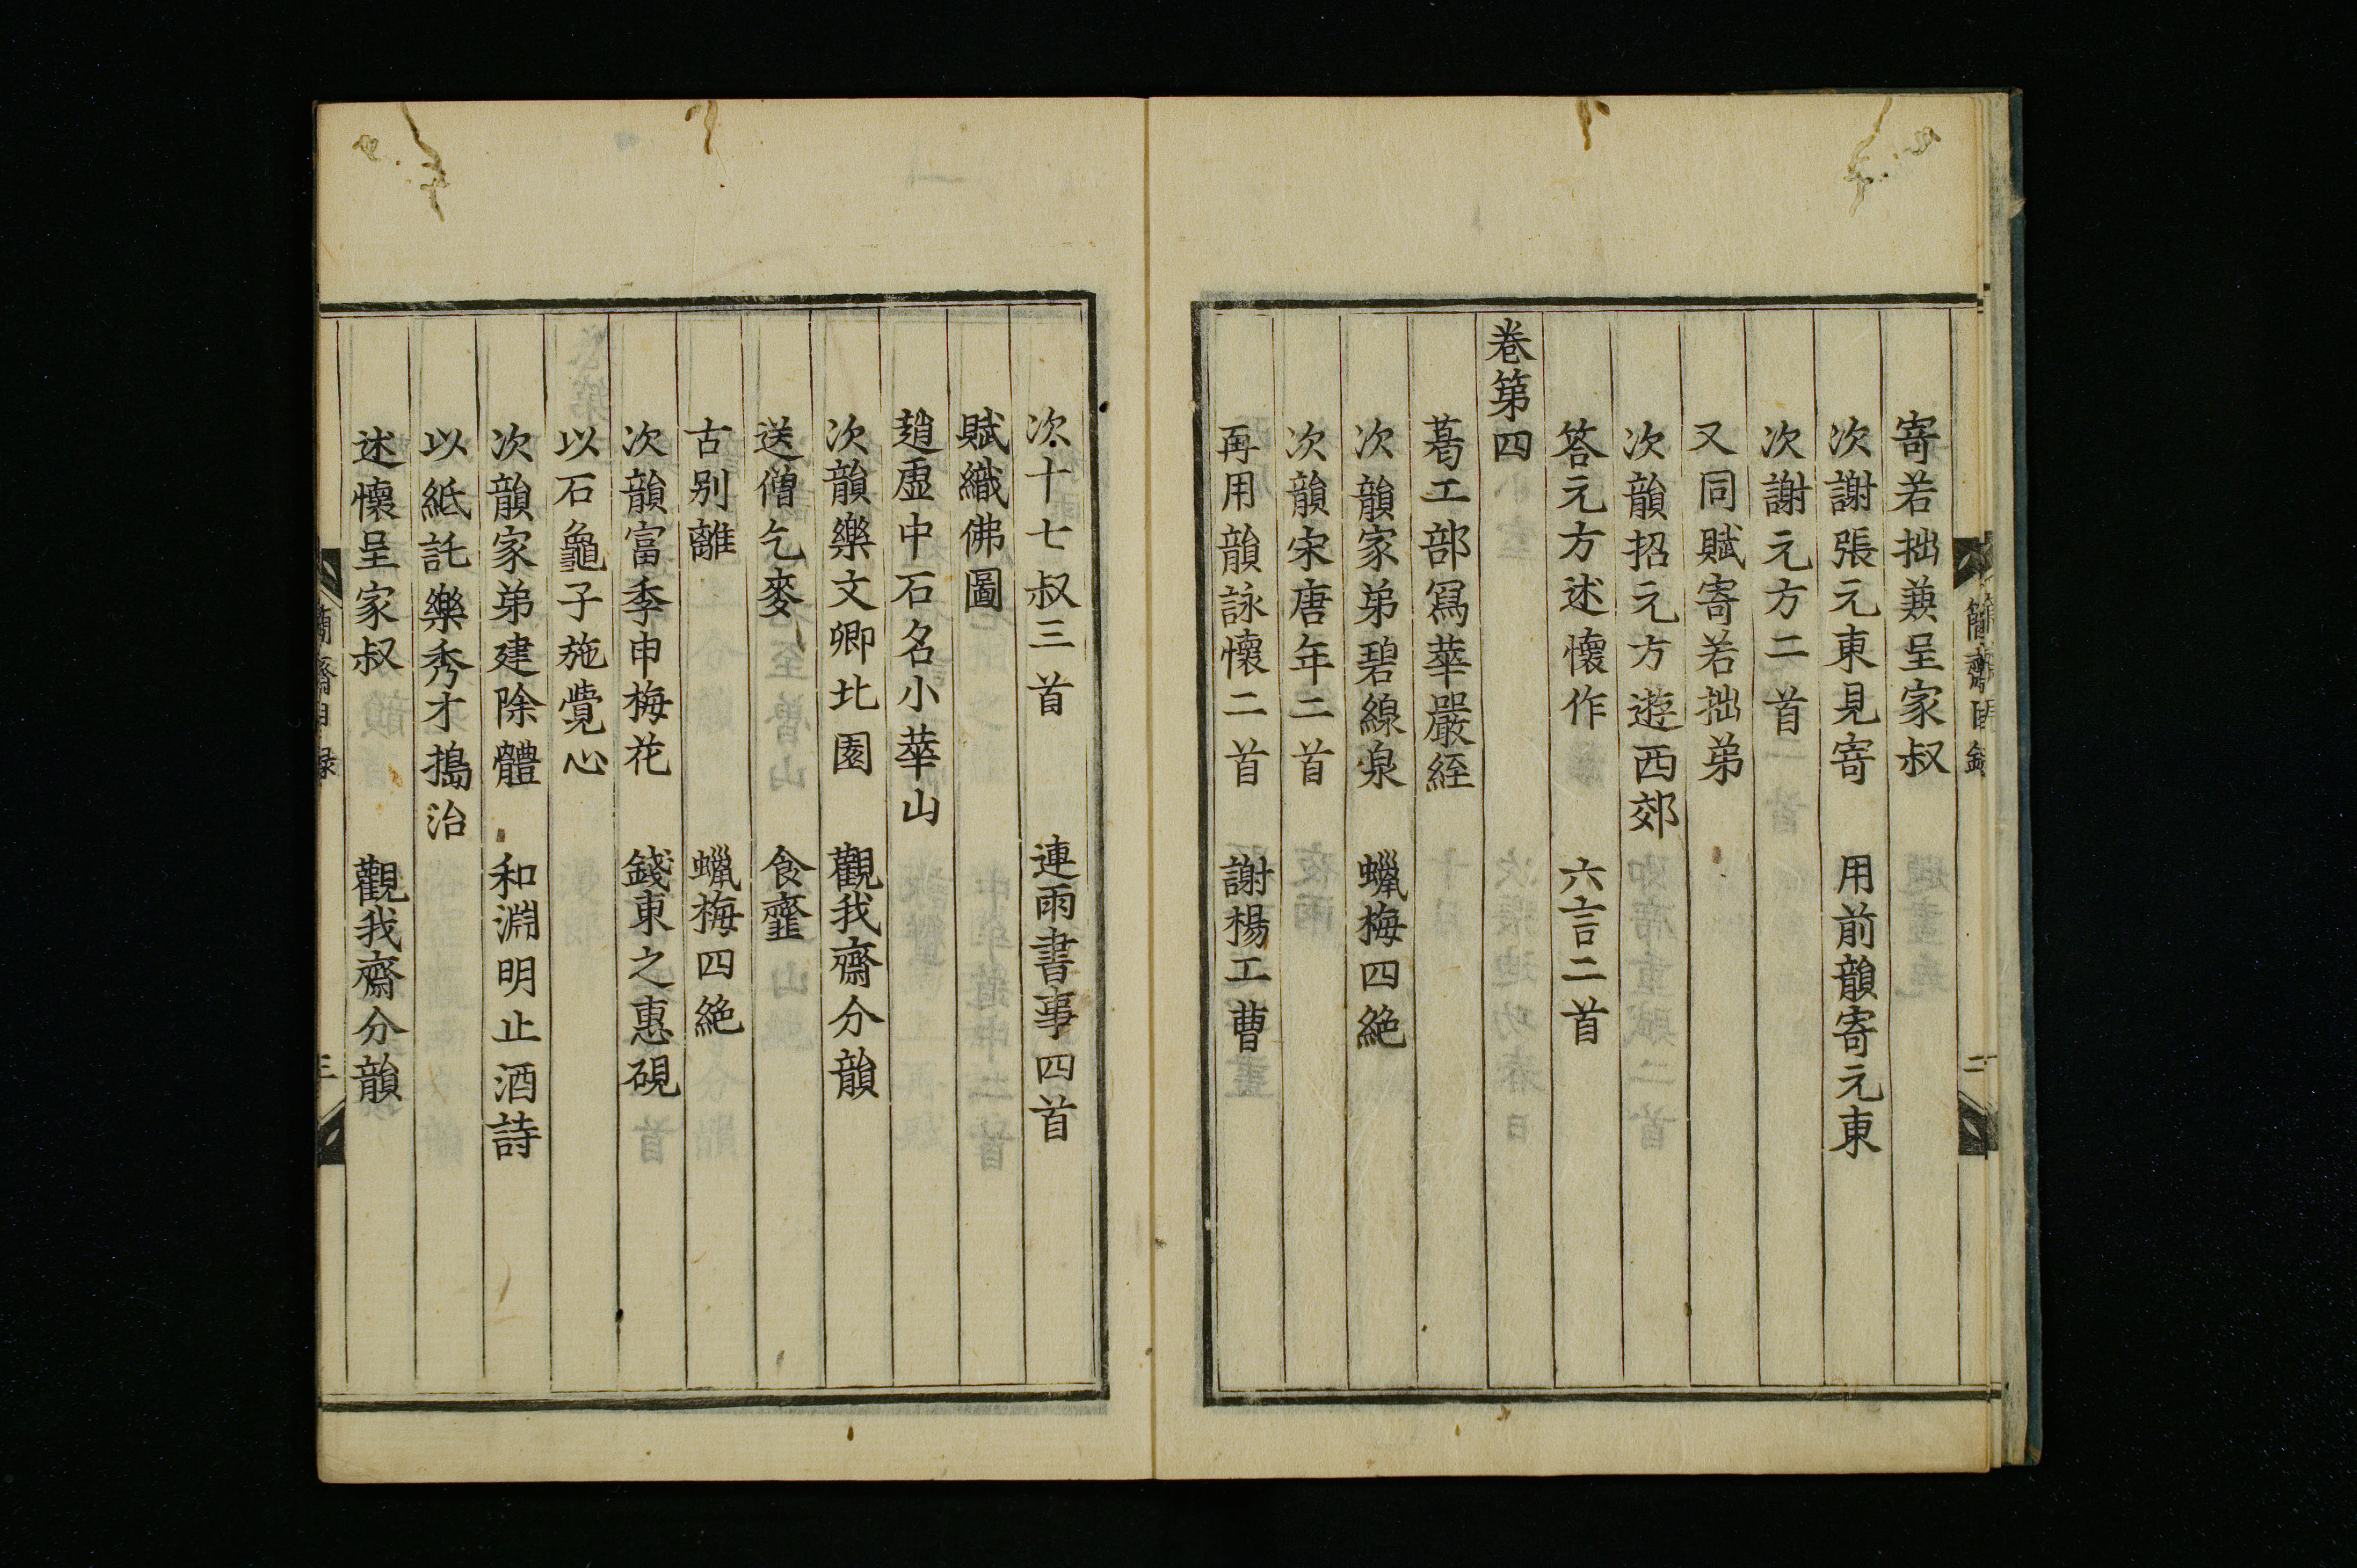 寄若拙兼呈家叔
次謝張元東見寄　用前韻寄元東
次謝元方二首
又同賦寄若拙弟
次韻招元方遊西郊
答元方述懷作　六言二首
卷第四
葛工部寫華嚴經
次韻家弟碧線泉　蠟梅四絶
次韻宋唐年二首
再用韻詠懷二首　謝楊工曹
次十七叔三首　連雨書事四首
賦織佛圖
趙虛中石名小華山
次韻樂文卿北園　觀我齋分韻
送僧乞麥　食虀
古别離　蠟梅四絶
次韻富季申梅花　錢東之惠硯
以石龜子施覺心
次韻家弟建除體　和淵明止酒詩
以紙託樂秀才搗治
述懷呈家叔　觀我齋分韻
簡齋目録